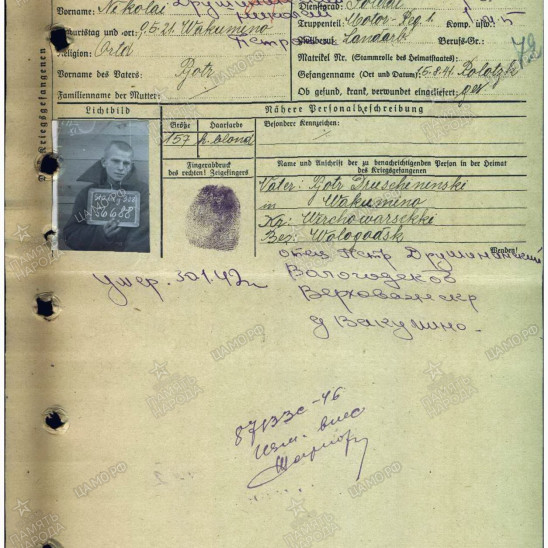 Vorname: Nikolai
Дружининский
Николай
Петро
Dienstgrad: Soldat
Truppenteil: Motor-Reg 1. Komp. usw.:
Geburtstag und -ort: 9.5.21 Wakumino
Zivilberuf: Landarb. Berufs-Gr.:
Religion: Ortd
Matrikel Nr. (Stammrolle des Heimatstaates):
Vorname des Vaters: Pjotr
Gefangennahme (Ort und Datum): 15.8.41 Polotzk
Familienname der Mutter:
Ob gesund, krank, verwundet eingeliefert: ges
Des Kriegsgefangenen
Lichtbild
Nähere Personalbeschreibung
Größe
Haarfarbe
Besondere Kennzeichen:
157
d. blond
Fingerabdruck
des rechten! Zeigefingers
Name und Anschrift der zu benachrichtigenden Person in der Heimat
des Kriegsgefangenen
Vater: Pjotr Druscheninski
in Wakumino
Kr: Werchowarsckki
Bez: Wologodsk
Wenden!
56688
отец Петр Дружининский
Вологодской
Верховажск р
д Вакумино.
Умер. 30.1.42г
87133с-46
ЦАМО.РФ
ПАМЯТЬ
НАРОДА